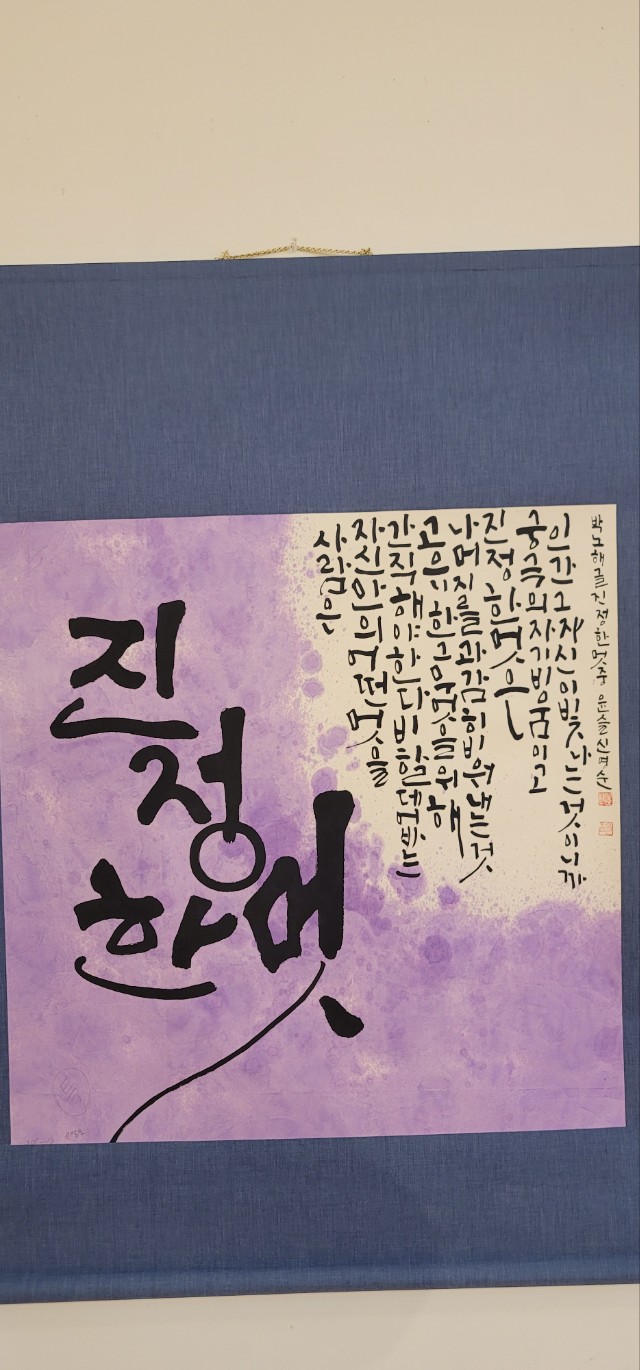 진
정
한 멋
사람은
자신만의 어떤 멋을
간직해야 한다 비할 데 없는
고유한 그 멋을 위해
나머지를 과감히 비워내는 것
진정 한 멋은
궁극의 자기비움이고
인간 그 자신이 빛나는 것이니까
박노해 글 진정한 멋 중 윤슬